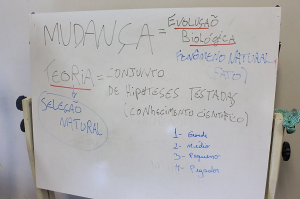 MUDANÇA = EVOLUÇÃO
BIOLÓGICA
FENÔMENO NATURAL
(FATO)
TEORIA = CONJUNTO
DE HIPÓTESES TESTADAS
(CONHECIMENTO CIENTÍFICO)
SELEÇÃO
NATURAL
1- Grande
2- Médio
3- Pequeno
4- Pegador